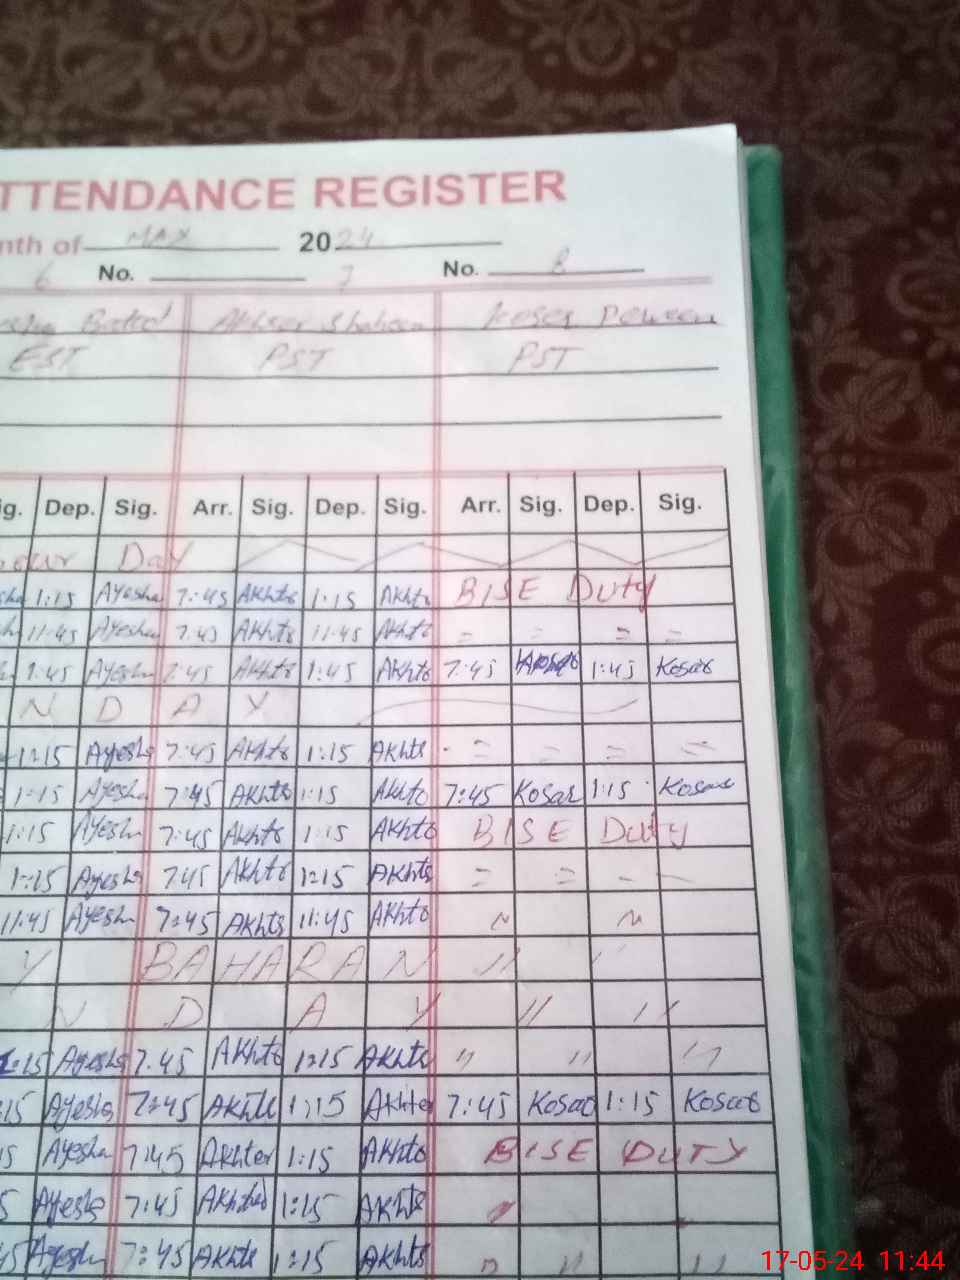 TTENDANCE REGISTER
nth of MAY 2024
6 No. 7 No. 8
Akhter Shaheen Koser Perveen
EST PST PST
ig. Dep. Sig. Arr. Sig. Dep. Sig. Arr. Sig. Dep. Sig.
our Day
1:15 Ayesha 7:45 Akhts 1:15 Akhts BISE Duty
11:45 Ayesha 7:45 Akhts 11:45 Akhts = = = =
1:45 Ayesha 7:45 Akhts 1:45 Akhts 7:45 1:45 Kosar
N D A Y
1:15 Ayesha 7:45 Akhts 1:15 Akhts = = = =
1:15 Ayesha 7:45 Akhts 1:15 Akhts 7:45 Kosar 1:15 Kosar
1:15 Ayesha 7:45 Akhts 1:15 Akhts BISE Duty
1:15 Ayesha 7:45 Akhts 1:15 Akhts = =
11:45 Ayesha 7:45 Akhts 11:45 Akhts
Y BAHARAN " "
N D A Y " "
1:15 Ayesha 7.45 Akhts 1:15 Akhts " " "
:15 Ayesha 7:45 Akhte 1:15 Akhter 7:45 Kosar 1:15 Kosar
15 Ayesha 7:45 Akhter 1:15 Akhts BISE DUTY
5 Ayesha 7:45 Akhter 1:15 Akhts "
45 Ayesha 7:45 Akhte 1:15 Akhts " " "
17-05-24 11:44